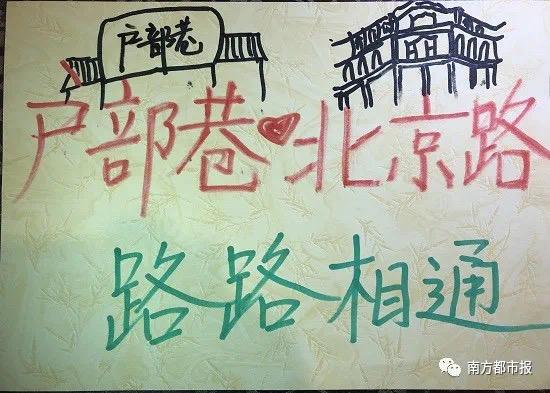 户部巷
户部巷北京路
路路相通
南方都市报